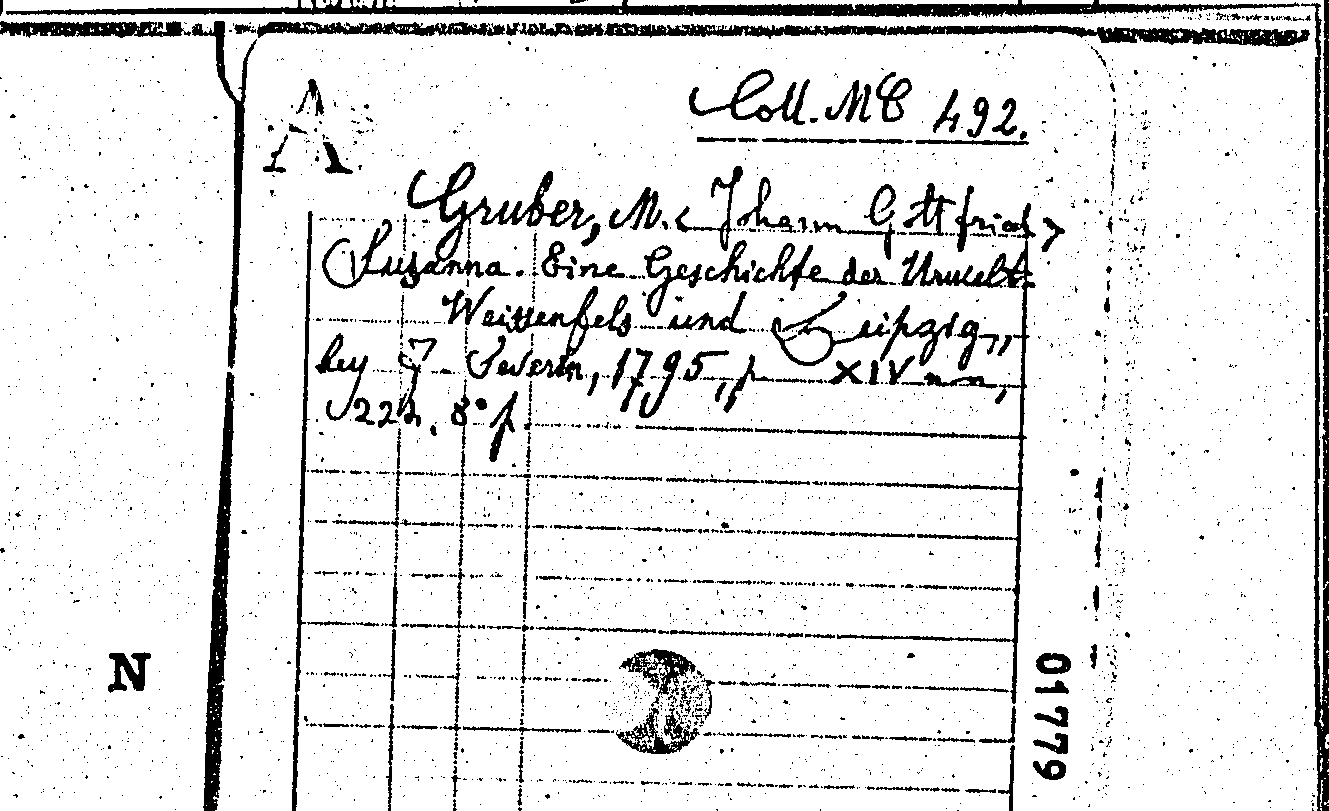 A
Coll. MC 492.
Gruber, M. < Johann Gottfried >
Susanna. Eine Geschichte der Urwelt.
Weissenfels und Leipzig,,
bey F. Severin, 1795, p XIV nn,
222, 8° p.
N
01779